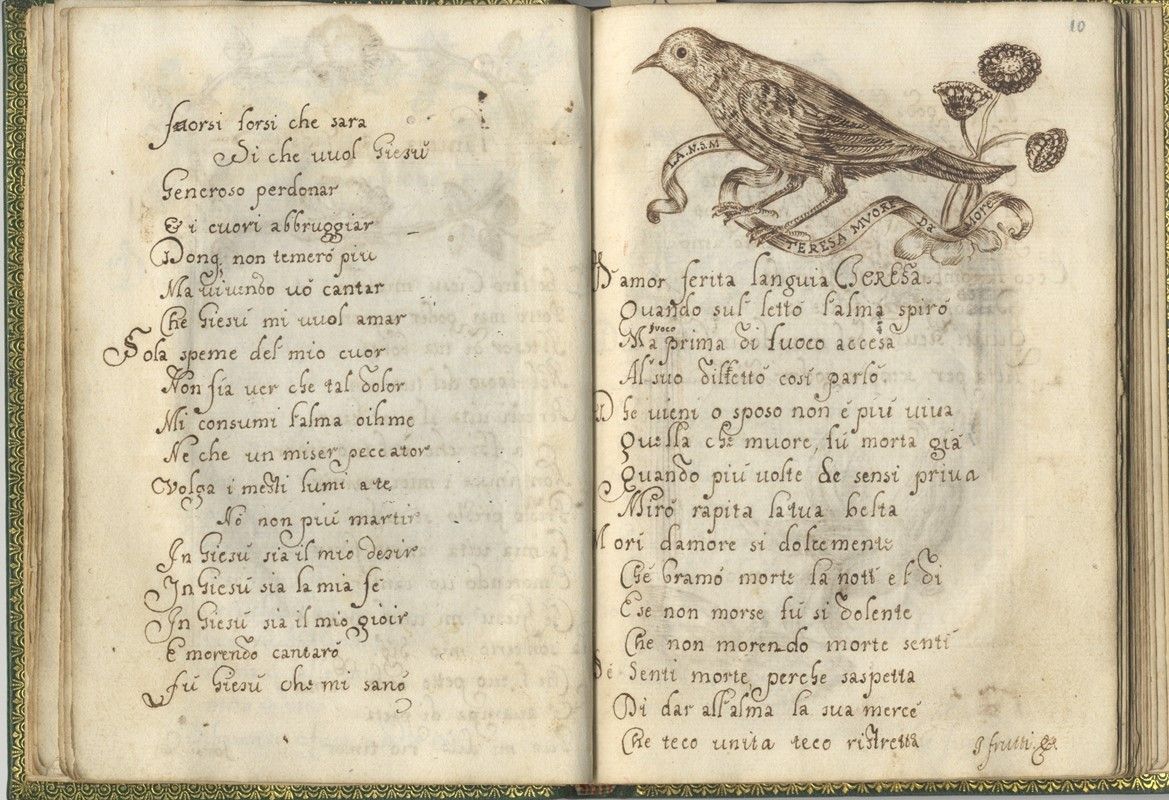 forsi forsi che sara
Di che vuol Giesù
Generoso perdonar
& i cuori abbruggiar
Donq; non temerò piu
Ma vivendo vò cantar
Che Giesù mi vuol amar
Sola speme del mio cuor
Non fia ver che tal dolor
Mi consumi l'alma oihme
Ne che un miser peccator
Volga i mesti lumi a te
Nò non più martir
In Giesù sia il mio desir
In Giesù sia la mia fe
In Giesù sia il mio gioir
E morendo cantarò
fù Giesù che mi sanò
10
LA.N.S.M
TERESA MVORE Da More
D'amor ferita languia Teresa
Quando sul' letto l'alma spirò
fuoco
Ma prima di fuoco accesa
Al suo diletto così parlò
Dhe vieni o sposo non è più viva
Quella che muore, fù morta già
Quando più volte de sensi priva
Mirò rapita la tua beltà
Morì d'amore si dolcemente
Che bramò morte la notte e'l dì
E se non morse fù si dolente
Che non morendo morte sentì
Sentì morte perche s'aspetta
Di dar all'alma la sua mercè
Che teco unita teco ristretta
I frutti. &.